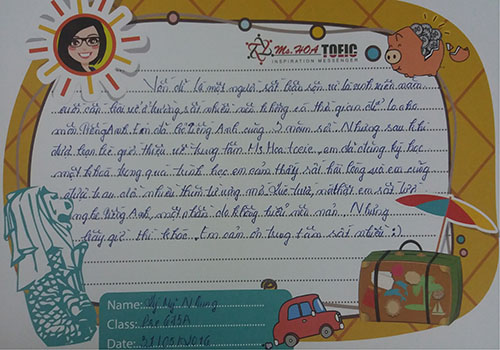 Ms. HOA TOEIC
INSPIRATION MESSENGER
Vốn dĩ là một người rất bận rộn vì là sinh viên năm
cuối cần bài vở ở trường rất nhiều nên không có thời gian để lo cho
môn Tiếng Anh. Em đã bỏ Tiếng Anh cũng 3 năm rồi. Nhưng sau khi
được bạn bè giới thiệu về trung tâm Ms Hoa toeic, em đã đăng ký học
một khoá trong quá trình học em cảm thấy rất hài lòng vì em cũng
được trau dồi nhiều thêm từ vựng mới. Trước, nhất em rất lười
nghe tiếng Anh, một phần do không hiểu nên nản. Nhưng
bây giờ thì khác. Em cảm ơn trung tâm rất nhiều :)
Name:
Class:
Date: